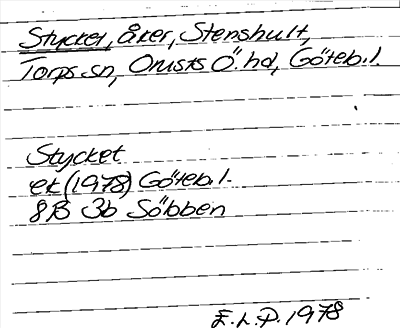 Stycket, åker, Stenshult,
Torps sn, Orusts Ö. hd, Göteb. l.
Stycket
ek (1978) Göteb. l.
8B 3b Söbben
E.L.P. 1978